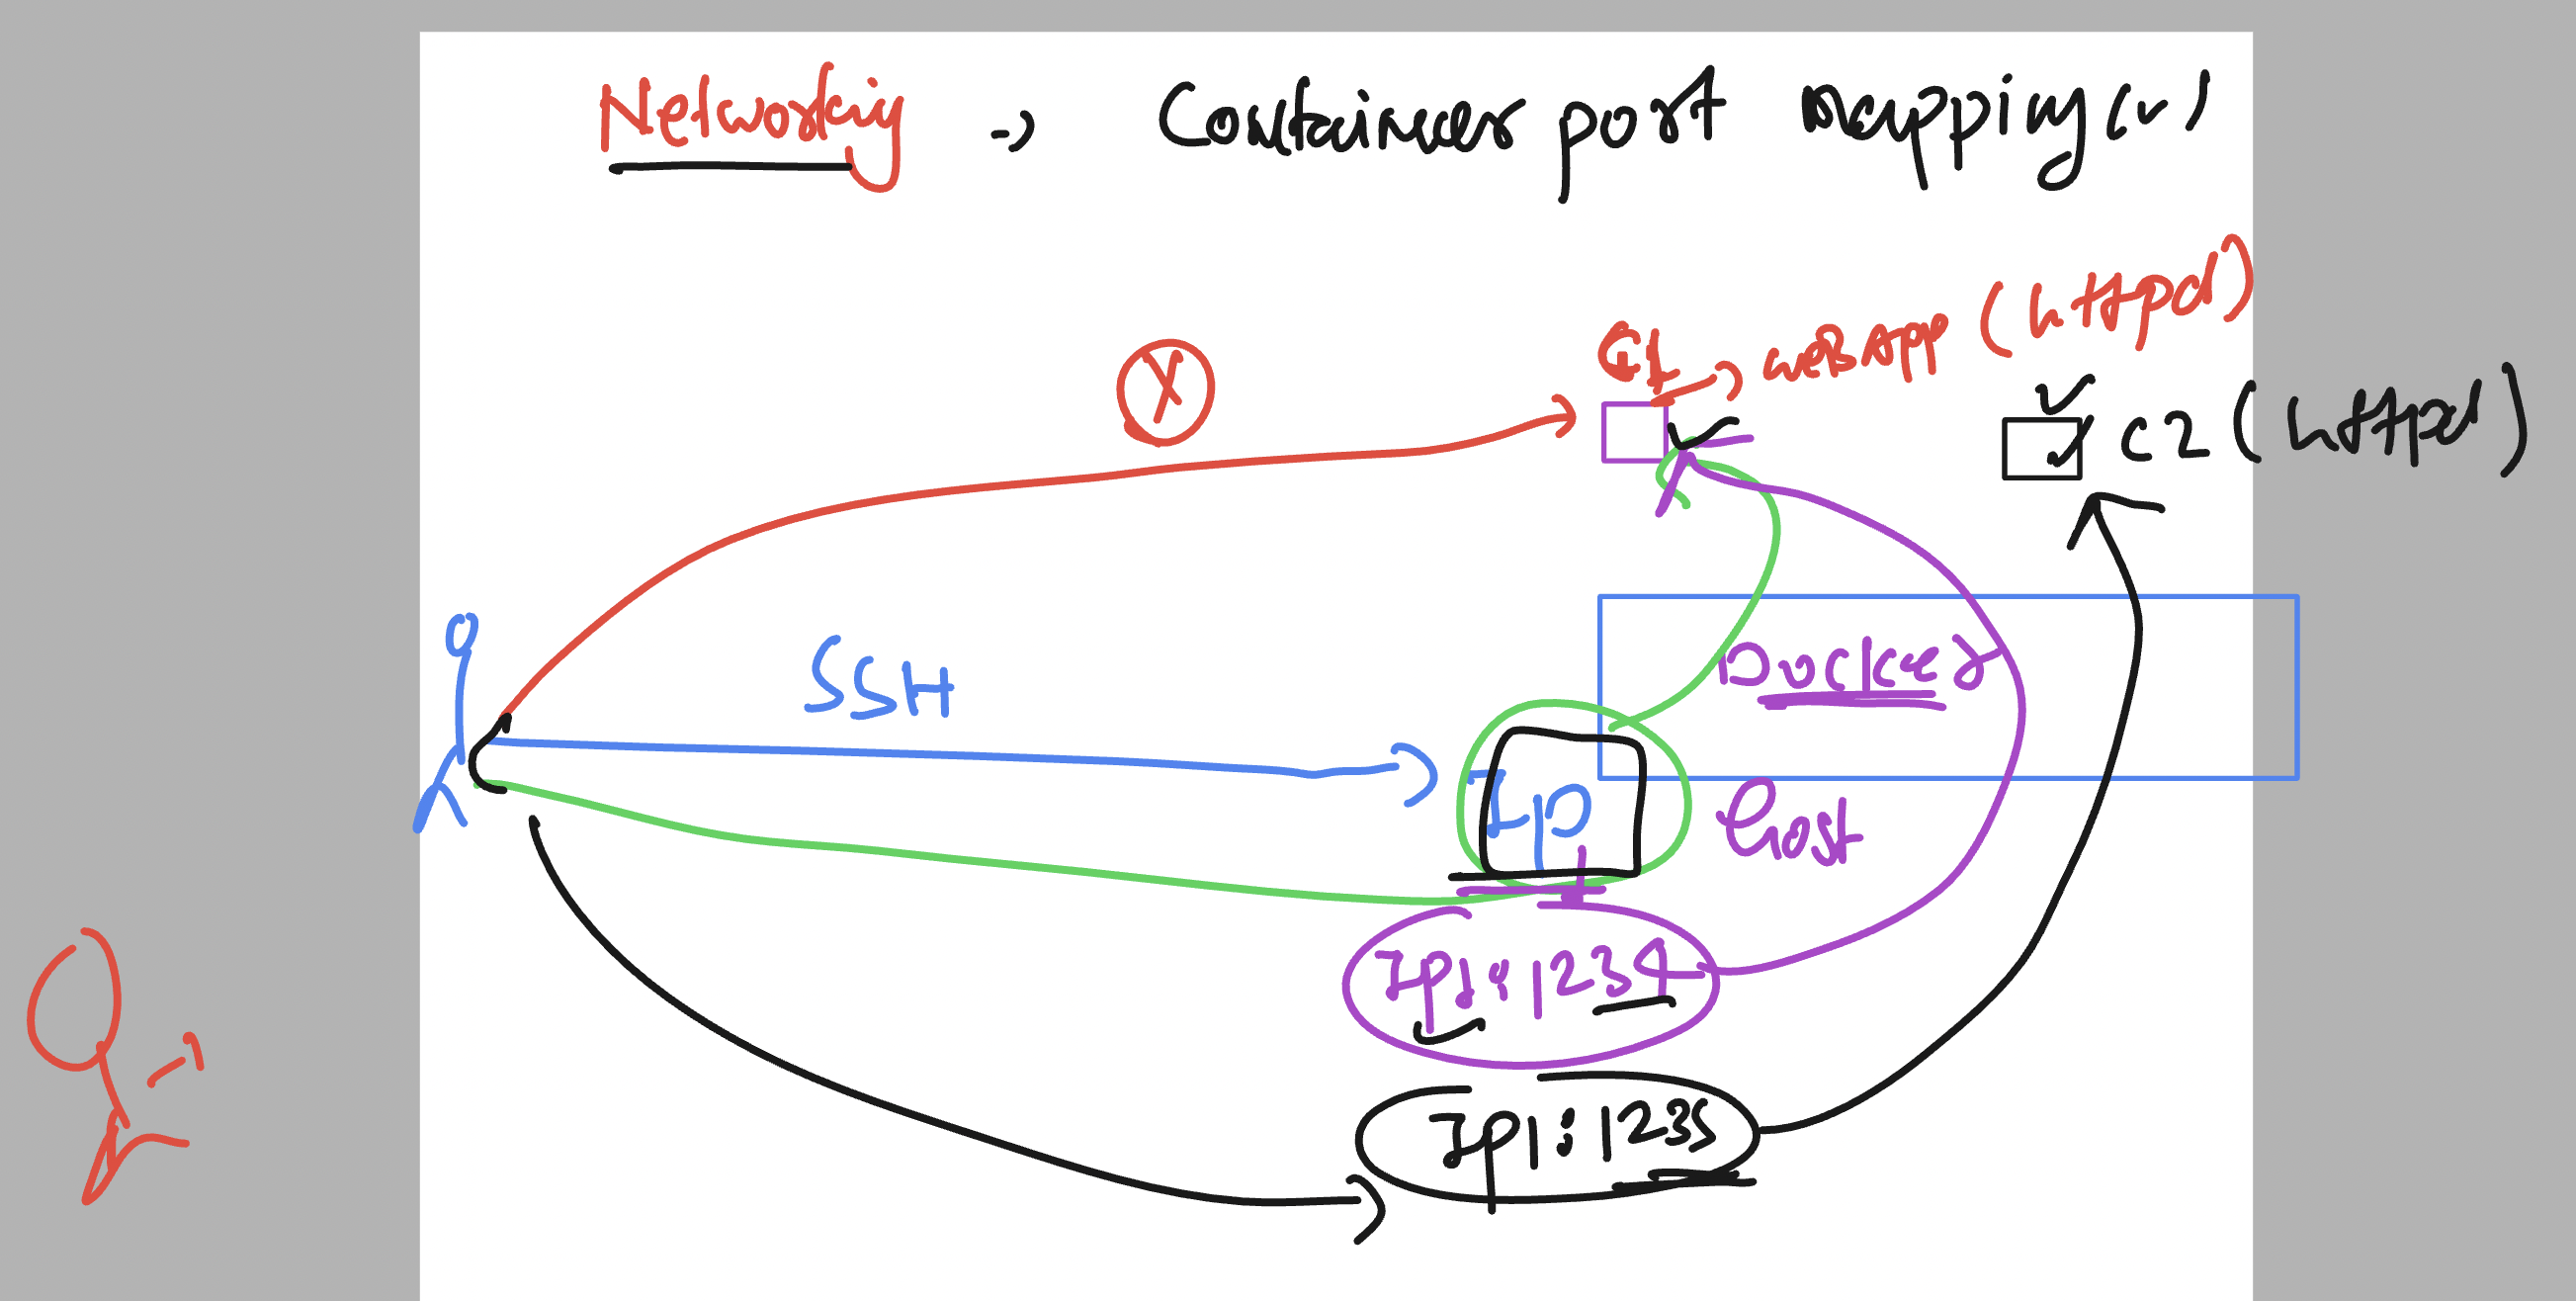 Networking -> Container port mapping (v)
C1 -> WEBAPP (httpd)
C2 (httpd)
X
SSH
Docker
IP
Host
IP1:1234
IP1:1235